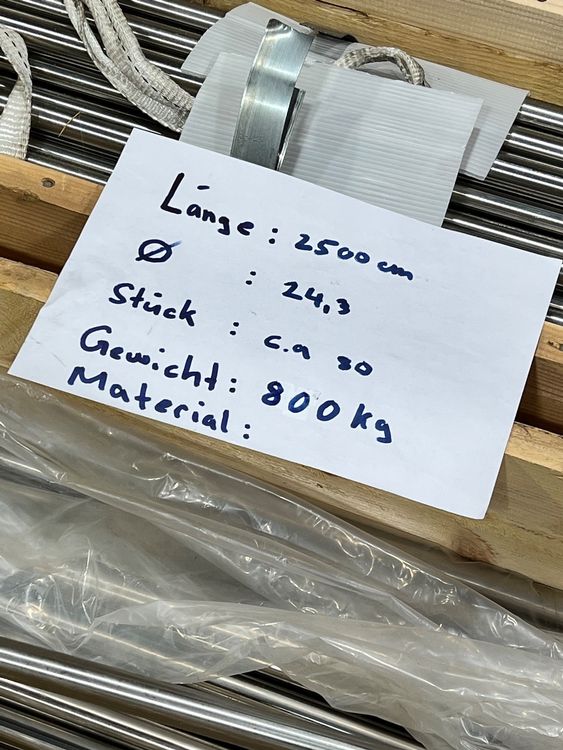 Länge : 2500 cm
Ø : 24,3
Stück : c.a 80
Gewicht : 800 kg
Material :